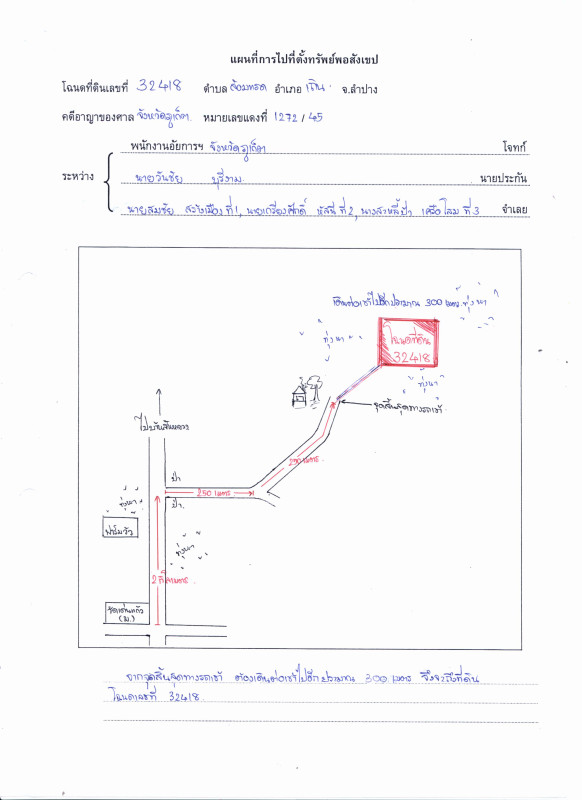 แผนที่การไปที่ตั้งทรัพย์พอสังเขป
โฉนดที่ดินเลขที่ 32418 ตำบล ล้อมแรด อำเภอ เถิน จ.ลำปาง
คดีอาญาของศาล จังหวัดภูเก็ต หมายเลขแดงที่ 1272 / 45
พนักงานอัยการฯ จังหวัดภูเก็ต โจทก์
ระหว่าง นายวันชัย บุรีงาม นายประกัน
นายสมชัย ที่ 1, นายเกรียงศักดิ์ ที่ 2, ที่ 3 จำเลย
เดินต่อเข้าไปอีกประมาณ 300 เมตร
ทุ่งนา
ทุ่งนา
โฉนดที่ดิน
32418
ทุ่งนา
จุดสิ้นสุดทางรถเข้า
250 เมตร
ป่า
250 เมตร
ทุ่งนา
ป่า
ฟาร์มวัว
ทุ่งนา
2 กิโลเมตร
(ม.)
จากจุดสิ้นสุดทางรถเข้า ต้องเดินต่อเข้าไปอีกประมาณ 300 เมตร จึงจะถึงที่ดิน
โฉนดเลขที่ 32418